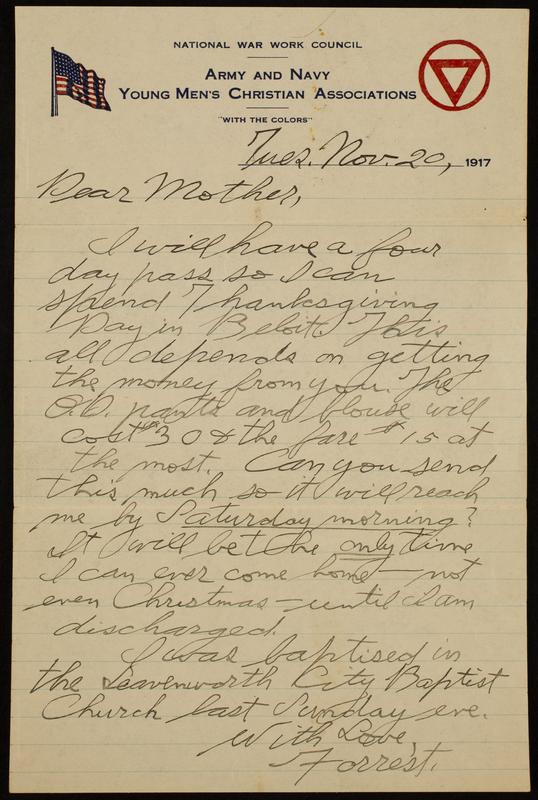 NATIONAL WAR WORK COUNCIL
ARMY AND NAVY
YOUNG MEN'S CHRISTIAN ASSOCIATIONS
"WITH THE COLORS"
Tues. Nov. 20, 1917
Dear Mother,
I will have a four
day pass so I can
spend Thanksgiving
Day in Beloit. This
all depends on getting
the money from you. The
O.D. pants and blouse will
cost $30 & the fare $15 at
the most. Can you send
this much so it will reach
me by Saturday morning?
It will be the only time
I can ever come home – not
even Christmas – until I am
discharged.
I was baptised in
the Leavenworth City Baptist
Church last Sunday eve.
With Love,
Forrest.